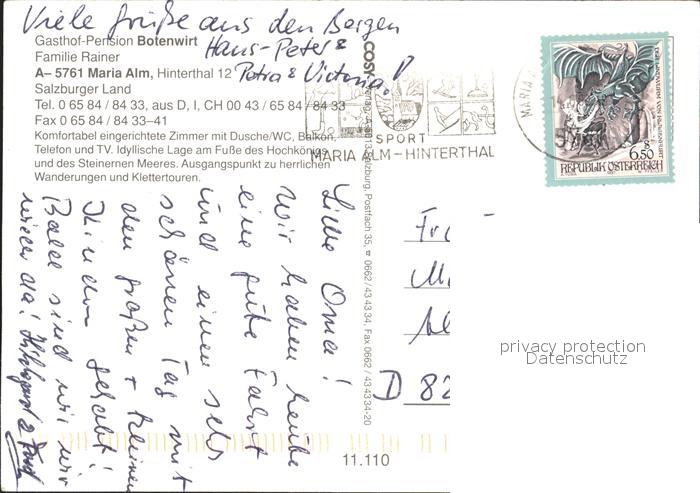 Viele Grüße aus den Bergen
Hans-Peter &
Petra & Victoria!
Gasthof-Pension Botenwirt
Familie Rainer
A– 5761 Maria Alm, Hinterthal 12
Salzburger Land
Tel. 0 65 84 / 84 33, aus D, I, CH 00 43 / 65 84 / 84 33
Fax 0 65 84 / 84 33–41
Komfortabel eingerichtete Zimmer mit Dusche/WC, Balkon,
Telefon und TV. Idyllische Lage am Fuße des Hochkönigs
und des Steinernen Meeres. Ausgangspunkt zu herrlichen
Wanderungen und Klettertouren.
Liebe Oma!
Wir haben heute
eine gute Fahrt
und einen sehr
schönen Tag mit
den großen + kleinen
Kindern gehabt!
Bald sind wir
wieder da!
COSY
Salzburg, Postfach 35, ☎ 0662 / 43 43 34, Fax 0662 / 43 43 34-20
SPORT
MARIA ALM–HINTERTHAL
MARIA
6.50
REPUBLIK ÖSTERREICH
Fr
D 82
11.110
privacy protection
Datenschutz